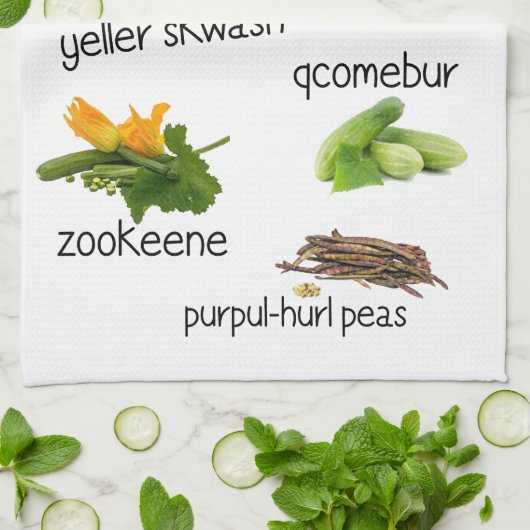 yeller skwash
qcomebur
zookeene
purpul-hurl peas